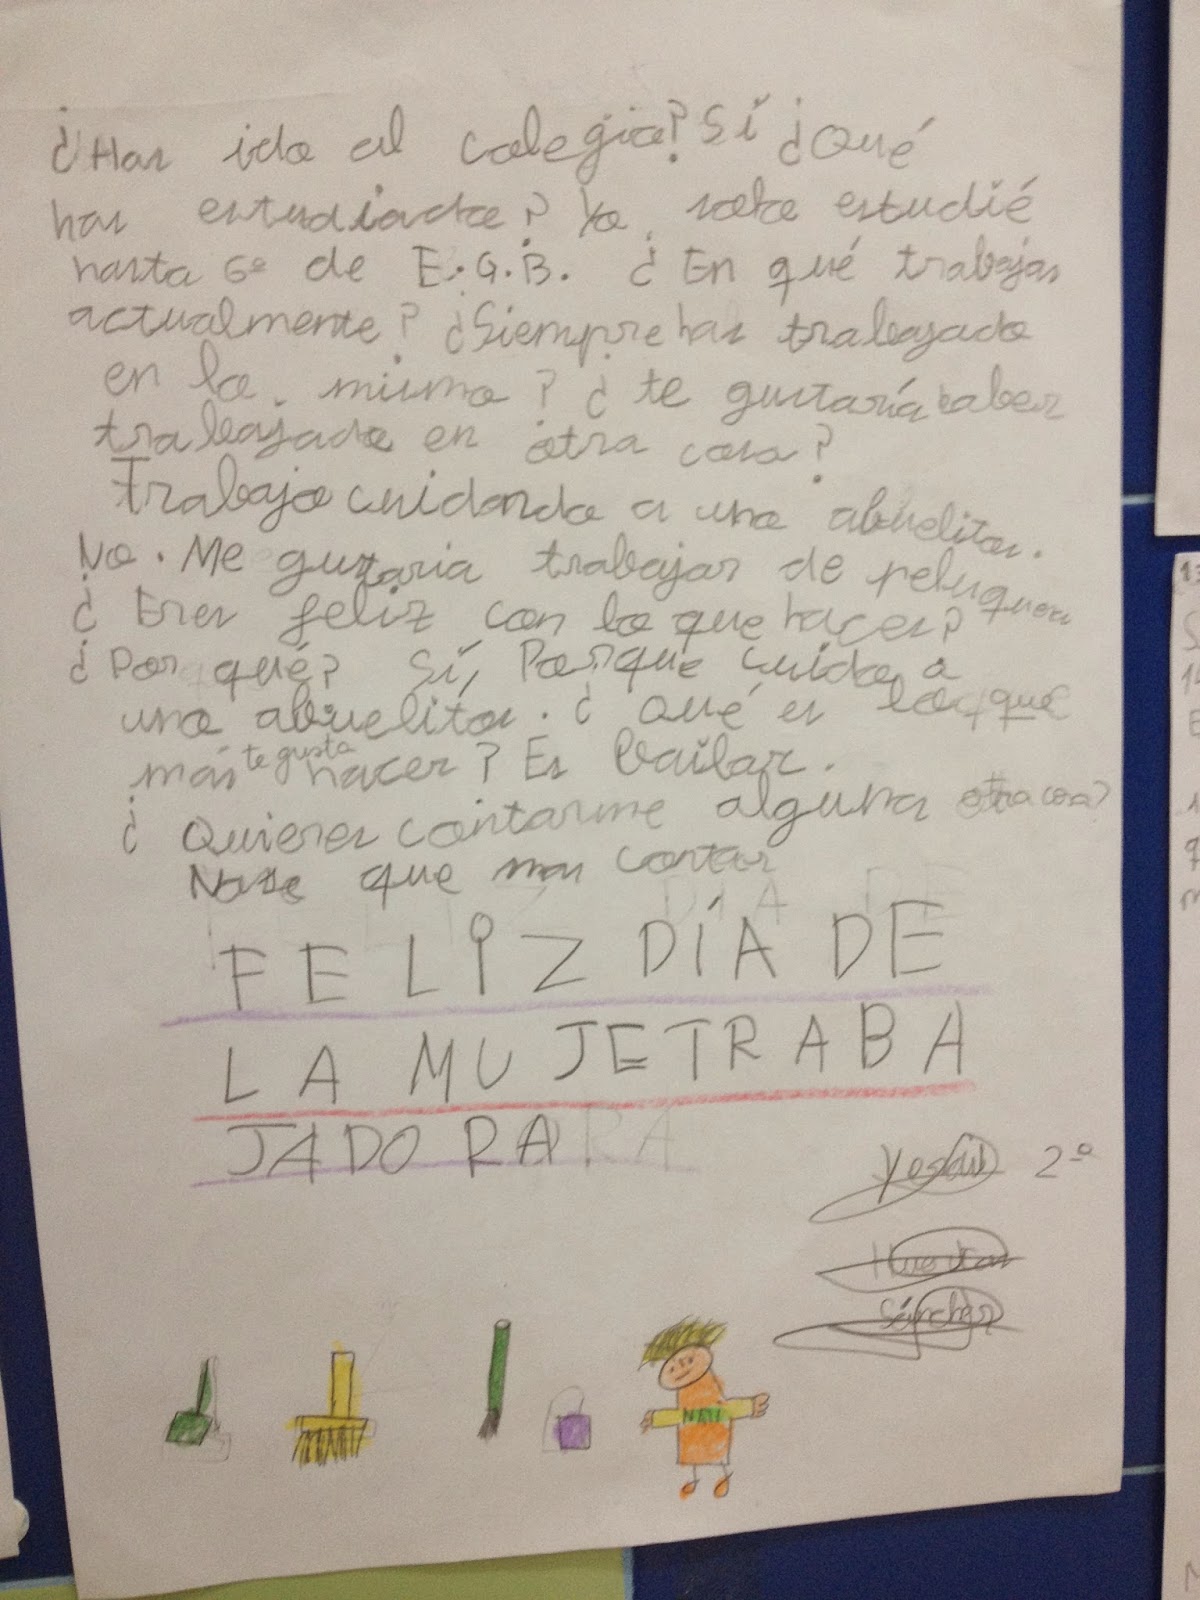 ¿Has ido al colegio? Sí ¿Qué
has estudiado? Yo solo estudié
hasta 6º de E.G.B. ¿En qué trabajas
actualmente? ¿Siempre has trabajado
en lo mismo? ¿te gustaría haber
trabajado en otra cosa?
Trabajo cuidando a uno abuelitos.
No. Me gustaria trabajar de peluquera
¿Eres feliz con lo que haces?
¿Por qué? Sí, Porque cuido a
uno abuelitos. ¿Qué es lo que
más te gusta hacer? Es bailar.
¿Quieres contarme alguna otra cosa?
que mas contar
FELIZ DÍA DE
LA MUJETRABA
JADORA
2º
Sánchez